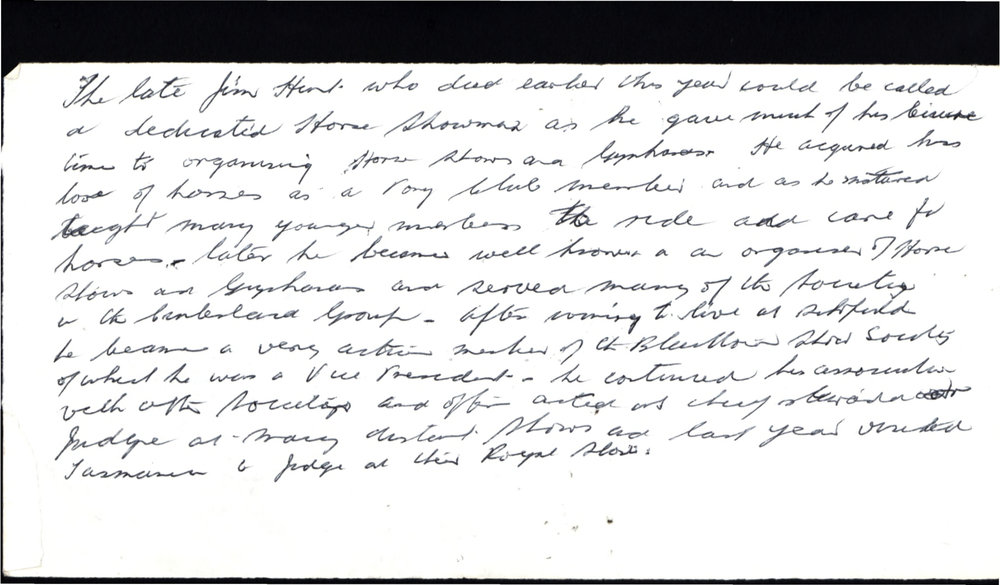 The late Jim Hunt who died earlier this year could be called
a dedicated Horse Showman as he gave much of his leisure
time to organising Horse Shows and Gymkhanas. He acquired his
love of horses as a Pony Club member and as he matured
taught many younger members to ride and care for
horses. - later he became well known as an organiser of Horse
Shows and Gymkhanas and served many of the Societies
in the Cumberland Group - After coming to live at
he became a very active member of the Show Society
of which he was a Vice President - he continued his association
with other Societies and often acted as chief steward
Judge at many distant Shows and last year visited
Tasmania to Judge at their Royal Show.